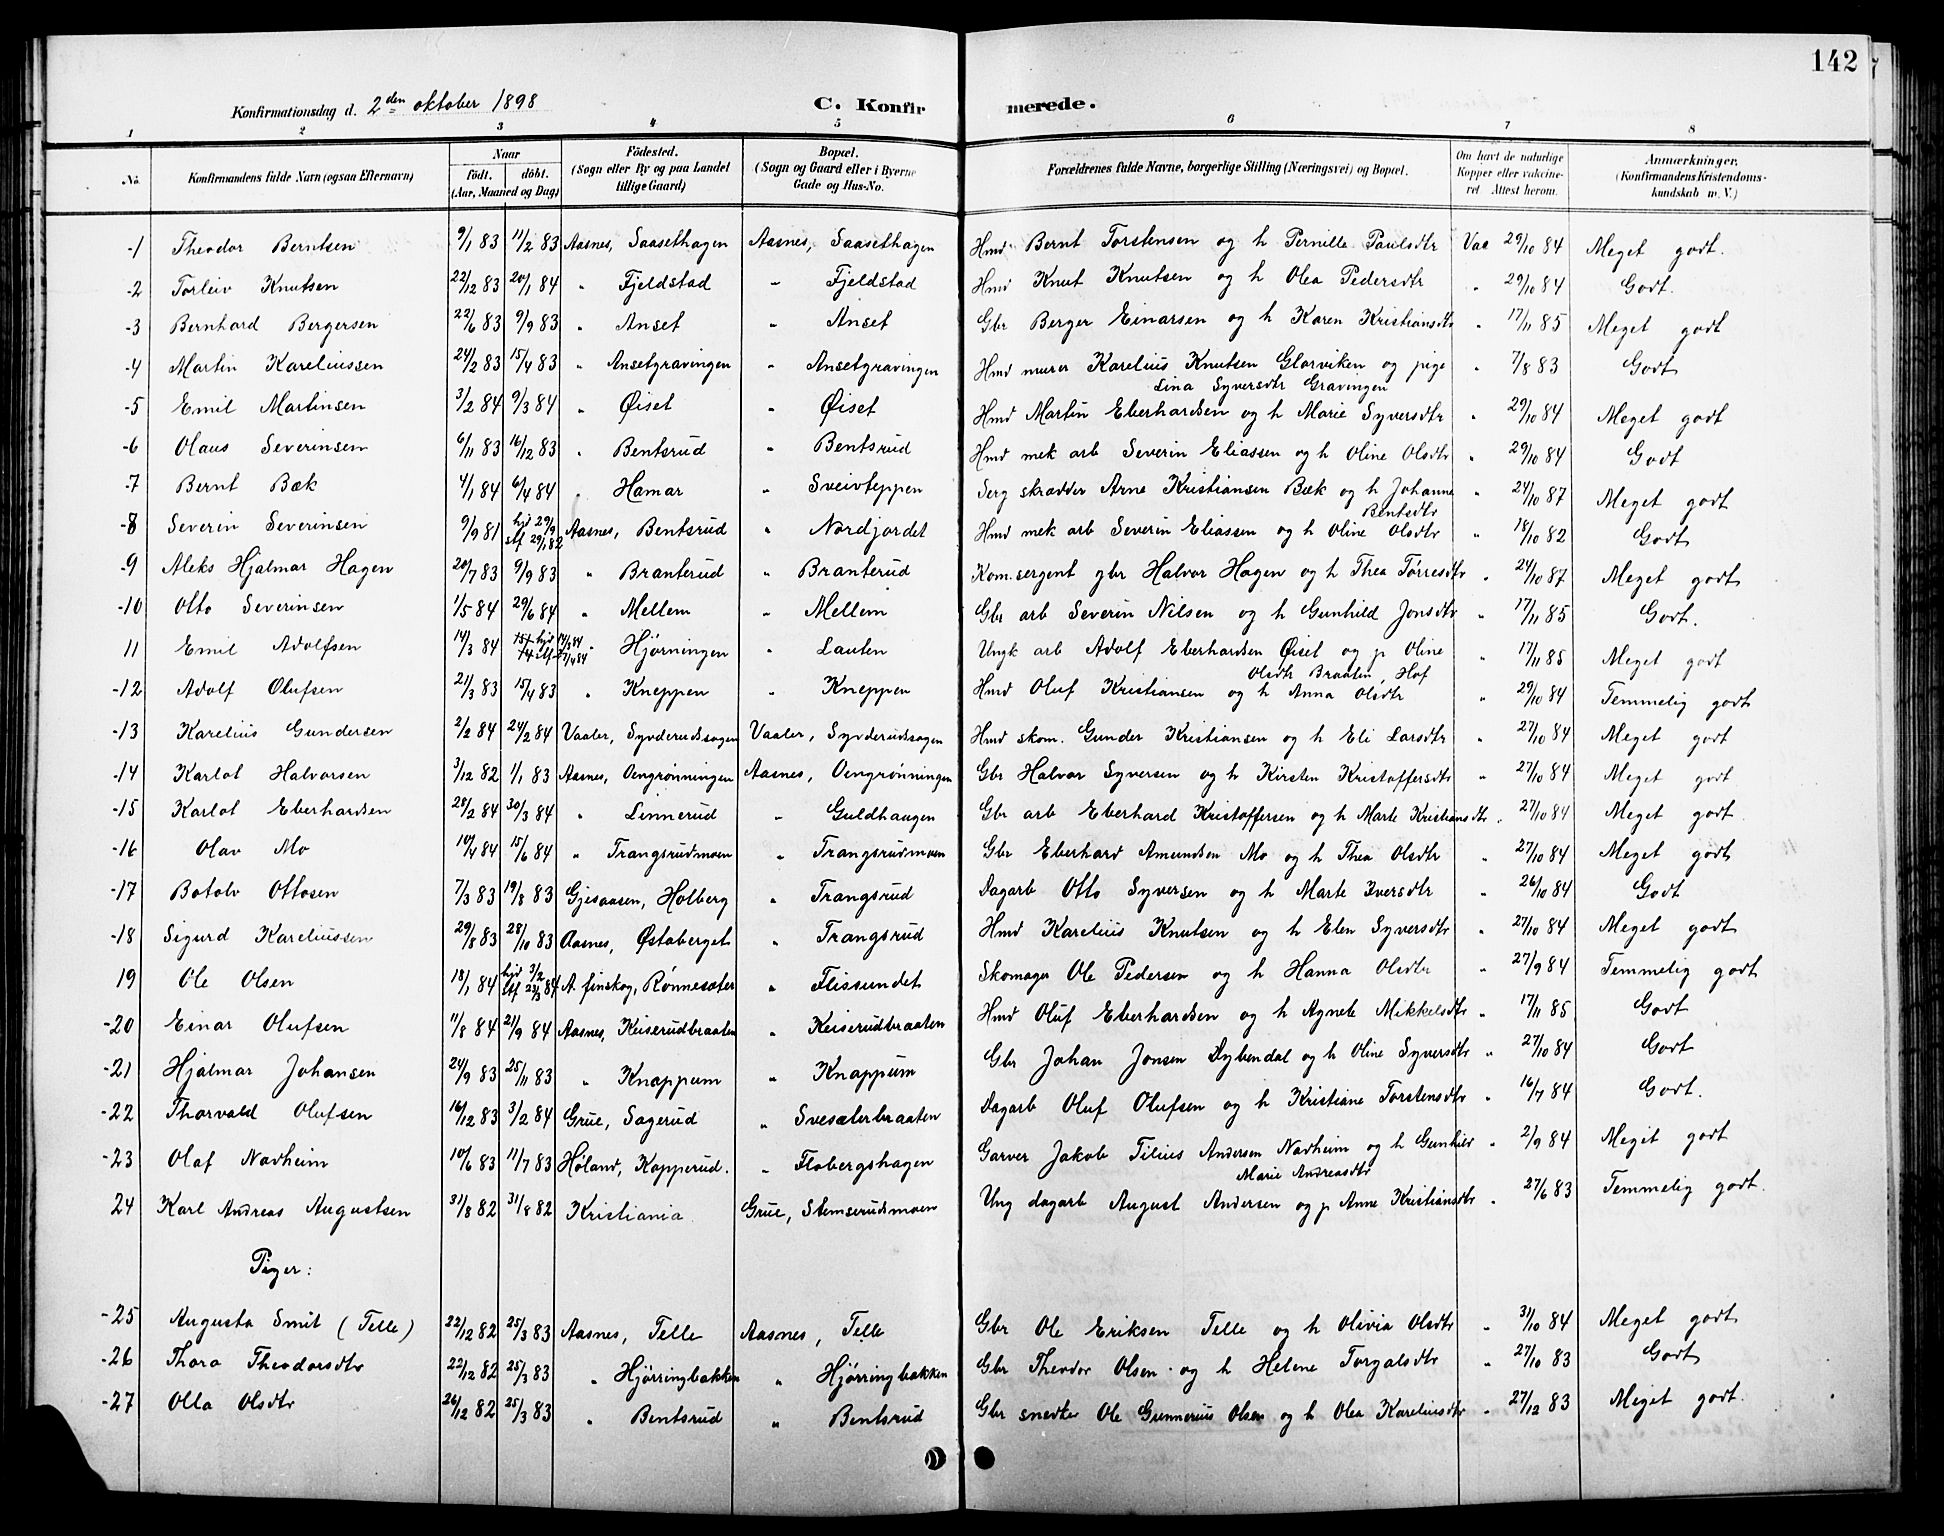 142
Konfirmationsdag d. 2den oktober 1898 C. Konfirmerede.
1 2 3 4 5 6 7 8
No. Konfirmandens fulde Navn (ogsaa Efternavn) Naar født. døbt. (Aar, Maaned og Dag) Fødested. (Sogn eller By og paa Landet tillige Gaard) Bopæl. (Sogn og Gaard eller i Byerne Gade og Hus-No. Forældrenes fulde Navne, borgerlige Stilling (Næringsvei) og Bopæl. Om havt de naturlige Kopper eller vakcineret Attest herom. Anmærkninger. (Konfirmandens Kristendomskundskab m. V.)
-1 Theodor Berntsen 9/1 83 11/2 83 Aasnes, Saasethagen Aasnes, Saasethagen Hmd Bernt Torstensen og h Pernille Paulsdtr Vac 29/10 84 Meget godt.
-2 Torleiv Knutsen 22/12 83 20/1 84 " Fjeldstad " Fjeldstad Hmd Knut Knutsen og h Olea Pedersdtr " 29/10 84 Godt.
-3 Bernhard Bergersen 22/6 83 9/9 83 " Anset " Anset Gbr Berger Einarsen og h Karen Kristiansdtr " 17/11 85 Meget godt
-4 Martin Kareliussen 24/2 83 15/4 83 " Ansetgravingen " Ansetgravingen Hmd murer Karelius Knutsen Glorviken og pige " 7/8 83 Godt
Lina Syversdtr Gravingen
-5 Emil Martinsen 3/2 84 9/3 84 " Øiset " Øiset Hmd Martin Eberhardsen og h Marie Syversdtr " 29/10 84 Meget godt
-6 Olaus Severinsen 6/11 83 16/12 83 " Bentsrud " Bentsrud Hmd mek arb Severin Eliassen og h Oline Olsdtr " 29/10 84 Godt
-7 Bernt Bæk 4/1 84 6/4 84 " Hamar " Sveivteppen Serg skrædder Arne Kristiansen Bæk og h Johanne " 24/10 87 Meget godt
Bentsdtr
-8 Severin Severinsen 9/9 81 hjd 29/9 stf 29/1 82 Aasnes, Bentsrud " Nordjordet Hmd mek arb Severin Eliassen og h Oline Olsdtr " 18/10 82 Godt
-9 Aleks Hjalmar Hagen 20/7 83 9/9 83 " Branterud " Branterud Kom.sergent gbr Halvor Hagen og h Thea Tørresdtr " 24/10 87 Meget godt
-10 Otto Severinsen 1/5 84 29/6 84 " Mellem " Mellem Gbr arb Severin Nilsen og h Gunhild Jonsdtr " 17/11 85 Godt.
11 Emil Adolfsen 14/3 84 " Hjørningen " Lauten Ungk arb Adolf Eberhardsen Øiset og p Oline 17/11 85 Meget godt
Olsdtr Braaten, Hof
-12 Adolf Olufsen 21/3 83 15/4 83 " Kneppen " Kneppen Hmd Oluf Kristiansen og h Anna Olsdtr " 29/10 84 Temmelig godt
-13 Karelius Gundersen 2/2 84 24/2 84 Vaaler, Syvderudsagen Vaaler, Syvderudsagen Hmd skom. Gunder Kristiansen og h Eli Larsdtr " 27/10 84 Meget godt
-14 Karlot Halvorsen 3/12 82 1/1 83 Aasnes, Oengrønningen Aasnes, Oengrønningen Gbr Halvor Syversen og h Kirsten Kristoffersdtr " 27/10 84 Meget godt
-15 Karlot Eberhardsen 28/2 84 30/3 84 " Linnerud " Guldhaugen Gbr arb Eberhard Kristoffersen og h Marte Kristiansdtr " 27/10 84 Meget godt
-16 Olav Mo 14/4 84 15/6 84 " Trangsrudmoen " Trangsrudmoen Gbr Eberhard Amundsen Mo og h Thea Olsdtr " 27/10 84 Meget godt
-17 Botolv Ottosen 7/3 83 19/8 83 Gjesaasen, Holberg " Trangsrud Dagarb Otto Syversen og h Marte Iversdtr " 26/10 84 Godt
-18 Sigurd Kareliussen 29/8 83 28/10 83 Aasnes, Østaberget " Trangsrud Hmd Karelius Knutsen og h Elen Syversdtr " 27/10 84 Meget godt
19 Ole Olsen 18/1 84 hjd 3/2 stf 23/3 84 A. finskog, Rønnesæter " Flissundet Skomager Ole Pedersen og h Hanna Olsdtr " 27/9 84 Temmelig godt
-20 Einar Olufsen 11/8 84 21/9 84 Aasnes, Keiserudbraaten " Keiserudbraaten Hmd Oluf Eberhardsen og h Agnete Mikkelsdtr " 17/11 85 Godt
-21 Hjalmar Johansen 24/9 83 25/11 83 " Knappum " Knappum Gbr Johan Jonsen Dybendal og h Oline Syversdtr " 27/10 84 Godt
-22 Thorvald Olufsen 16/12 83 3/2 84 Grue, Sagerud " Svesæterbraaten Dagarb Oluf Olufsen og h Kristiane Torstensdtr " 16/7 84 Godt.
-23 Olaf Navheim 10/6 83 11/7 83 Høland, Kopperud. " Flobergshagen Garver Jakob Tilius Andersen Navheim og h Gunhild " 2/9 84 Meget godt
Marie Andreasdtr
24 Karl Andreas Augustsen 31/8 82 31/8 82 Kristiania. Grue, Stemserudsmoen Ung dagarb August Andersen og p Anne Kristiansdtr " 27/6 83 Temmelig godt.
Piger:
-25 Augusta Smit (Telle) 22/12 82 25/3 83 Aasnes, Telle Aasnes, Telle Gbr Ole Eriksen Telle og h Olivia Olsdtr " 31/10 84 Meget godt
-26 Thora Theodorsdtr 22/12 82 25/3 83 " Hjørringbakken " Hjørringbakken Gbr Theodor Olsen og h Helene Torgalsdtr " 27/10 83 Godt
-27 Olla Olsdtr 26/12 82 25/3 83 " Bentsrud " Bentsrud Gbr snedker Ole Gunnerius Olsen og h Olea Kareliusdtr " 27/12 83 Meget godt.